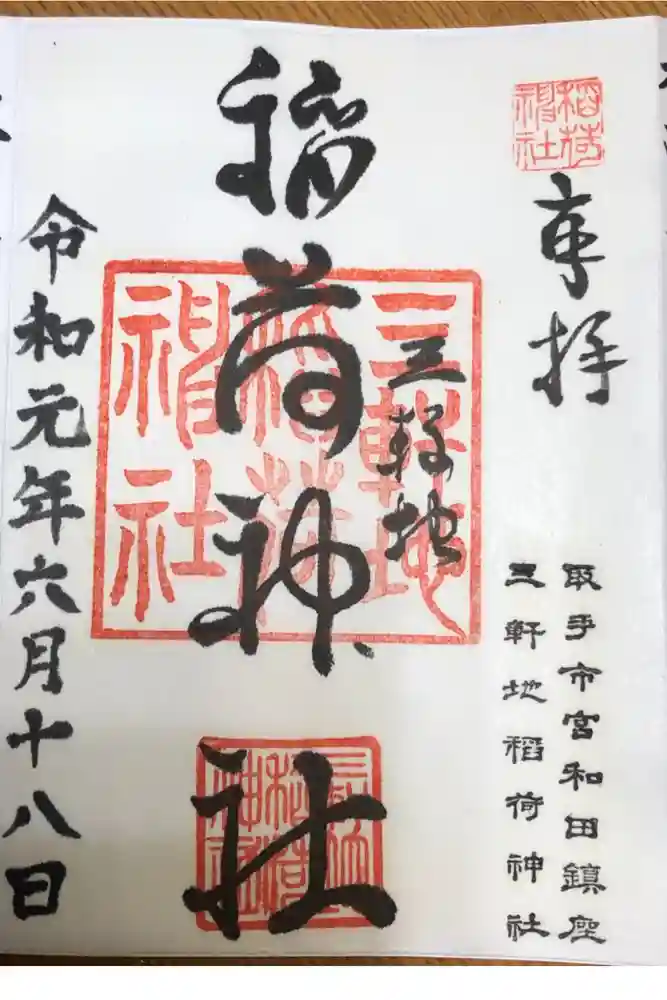 稲荷
神社
奉拝
取手市宮和田鎮座
三軒地稲荷神社
三軒地
稲荷神社
三軒地
稲荷
神社
令和元年六月十八日